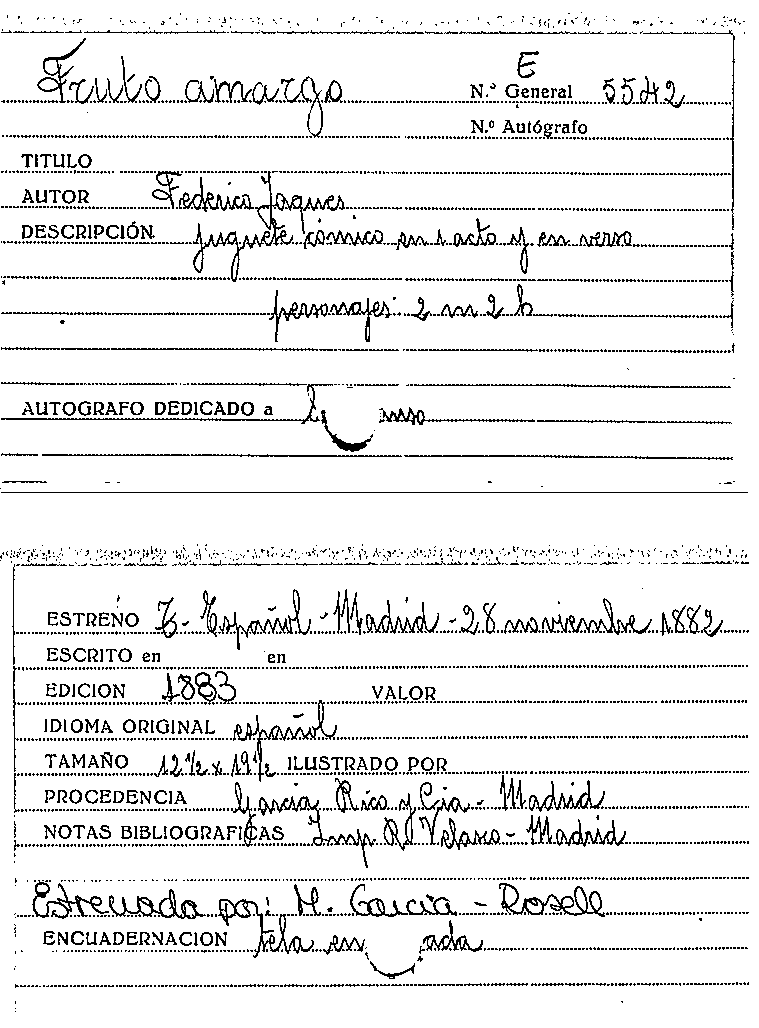 E
Fruto amargo N.º General 5542
N.º Autógrafo
TITULO
AUTOR Federico Jaques
DESCRIPCIÓN juguete cómico en 1 acto y en verso
personajes: 2 m 2 h
AUTOGRAFO DEDICADO a
ESTRENO T- Español - Madrid - 28 noviembre 1882
ESCRITO en en
EDICION 1883 VALOR
IDIOMA ORIGINAL español
TAMAÑO 12 1/2 x 19 1/2 ILUSTRADO POR
PROCEDENCIA Garcia Rico y Cia - Madrid
NOTAS BIBLIOGRAFICAS Imp R. Velasco - Madrid
Estrenada por: M. Garcia - Rosell
ENCUADERNACION tela en ada